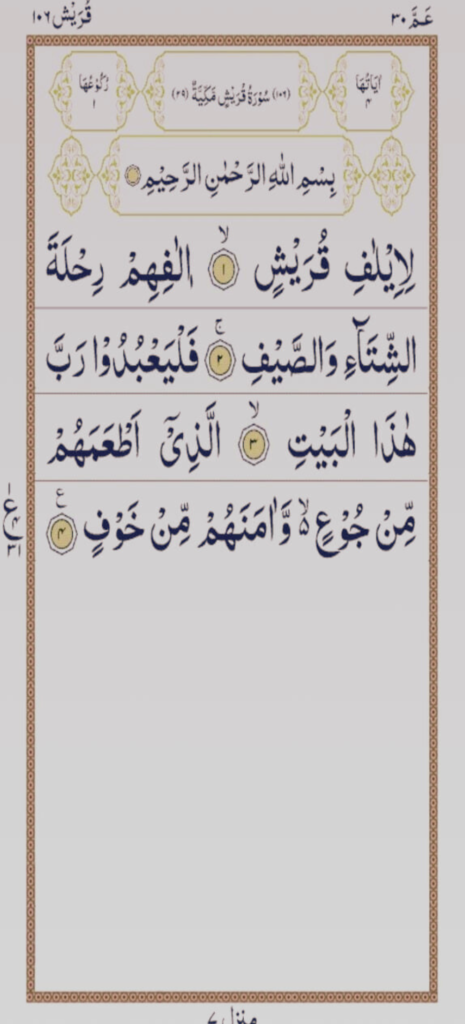 عَمَّ ٣٠
قُرَيْش ١٠٦
اٰيَاتُهَا ٤
(١٠٦) سُوْرَةُ قُرَيْشٍ مَكِّيَّةٌ (٢٩)
رُكُوْعُهَا ١
بِسْمِ اللّٰهِ الرَّحْمٰنِ الرَّحِيْمِ
لِاِيْلٰفِ قُرَيْشٍ ۙ‏ ١ اٖلٰفِهِمْ رِحْلَةَ
الشِّتَآءِ وَالصَّيْفِ ۚ‏ ٢ فَلْيَعْبُدُوْا رَبَّ
هٰذَا الْبَيْتِ ۙ‏ ٣ الَّذِىْٓ اَطْعَمَهُمْ
مِّنْ جُوْعٍ ۙ۬ وَّاٰمَنَهُمْ مِّنْ خَوْفٍ ع ٤
ع
١
٤
٣١
منزل ٧